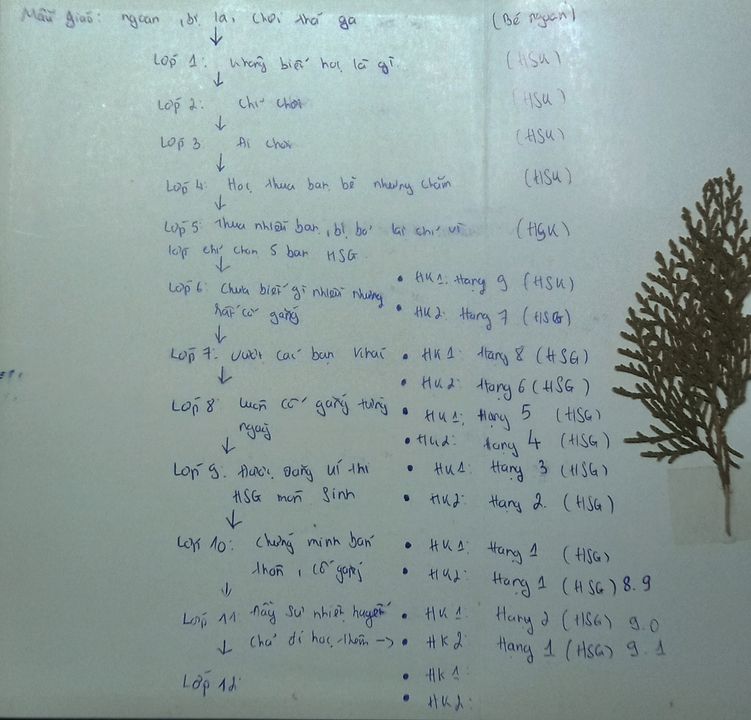 Mẫu giáo: ngoan, bị la, chơi thả ga (Bé ngoan)
Lớp 1: Không biết học là gì. (HSK)
Lớp 2: Chỉ chơi (HSK)
Lớp 3 Ai chơi (HSK)
Lớp 4: Học thua bạn bè nhưng chăm (HSK)
Lớp 5: Thua nhiều bạn, bị bỏ lại chỉ vì (HSK)
lớp chỉ chọn 5 bạn HSG.
Lớp 6: Chưa biết gì nhiều nhưng • HK1: Hạng 9 (HSK)
rất cố gắng • HK2: Hạng 7 (HSG)
Lớp 7: Vượt các bạn • HK1: Hạng 8 (HSG)
• HK2: Hạng 6 (HSG)
Lớp 8 Luôn cố gắng từng • HK1: Hạng 5 (HSG)
ngày • HK2: Hạng 4 (HSG)
Lớp 9. Được đăng kí thi • HK1: Hạng 3 (HSG)
HSG môn Sinh • HK2: Hạng 2. (HSG)
Lớp 10: Chứng minh bản • HK1: Hạng 1 (HSG)
thân, cố gắng • HK2: Hạng 1 (HSG) 8.9
Lớp 11 Đầy sự nhiệt huyết • HK1: Hạng 2 (HSG) 9.0
đi học thêm → • HK2: Hạng 1 (HSG) 9.1
Lớp 12: • HK1:
• HK2: